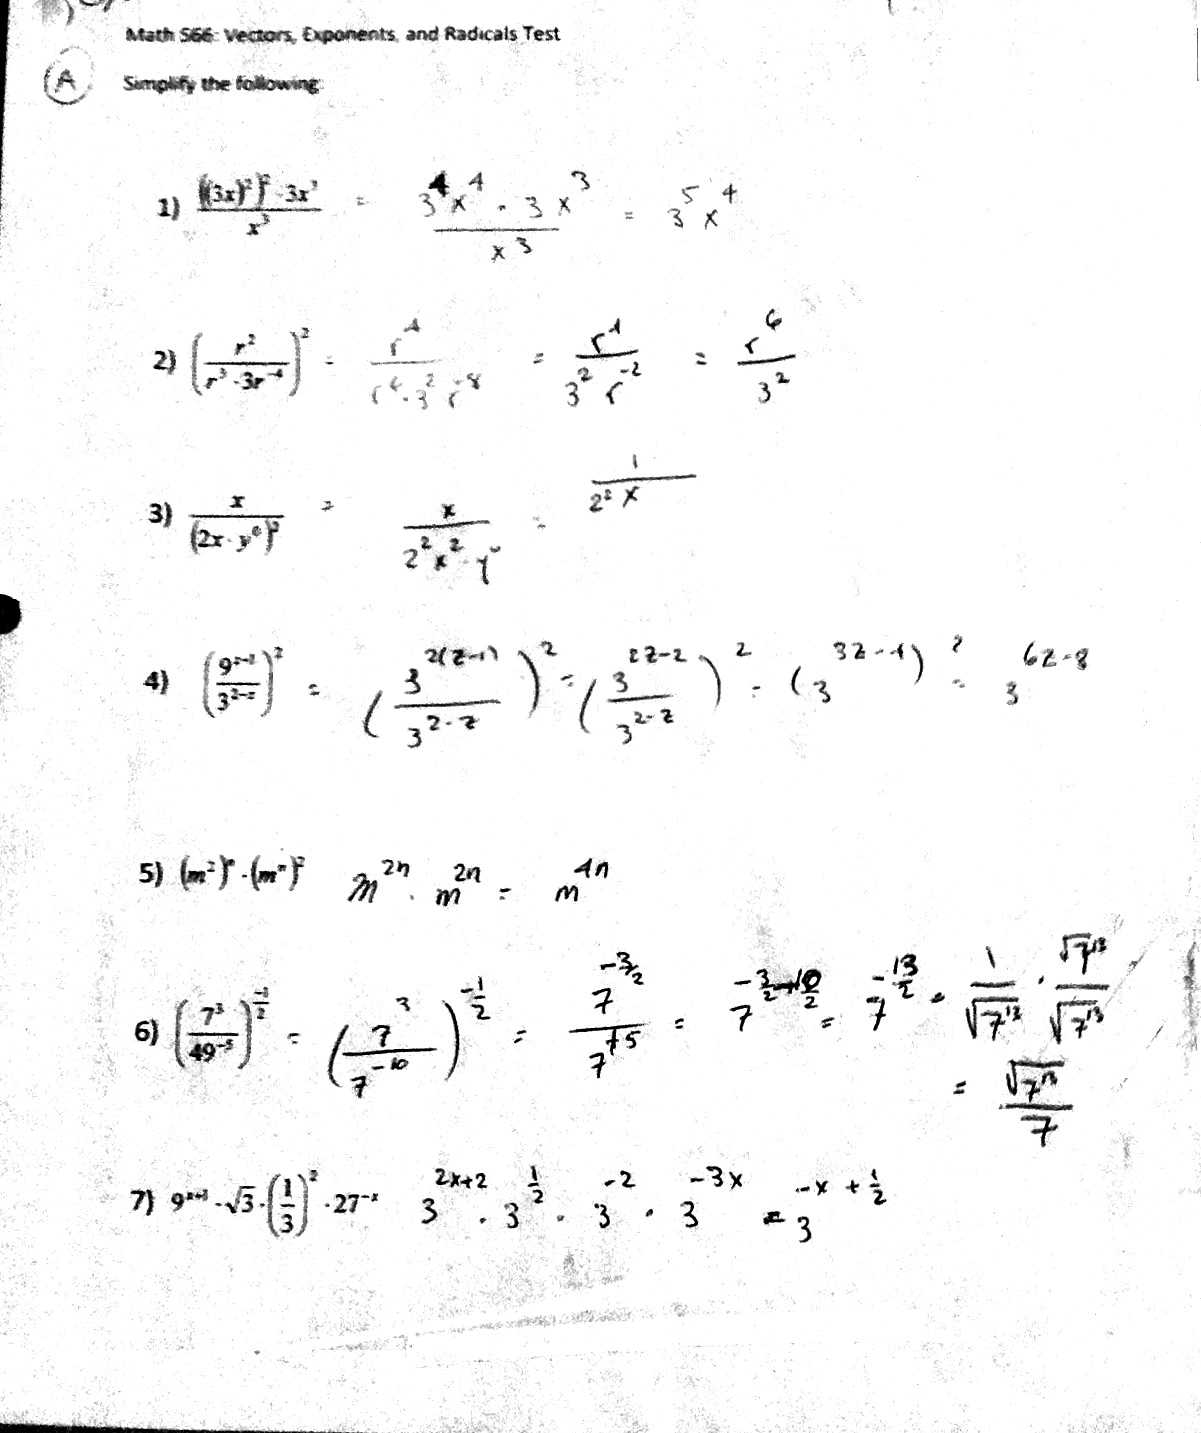 Math 566: Vectors, Exponents, and Radicals Test
(A) Simplify the following:
1) ((3x)²)² · 3x³ / x³ = 3⁴x⁴ · 3x³ / x³ = 3⁵x⁴
2) (r² / (r³ · 3r⁻⁴))² = r⁴ / (r⁶ · 3² r⁻⁸) = r⁴ / (3² r⁻²) = r⁶ / 3²
3) x / (2x · y⁰)² = x / (2²x² · y⁰) = 1 / (2² x)
4) (9ᶻ⁻¹ / 3²⁻ᶻ)² = (3^(2(z-1)) / 3^(2-z))² = (3^(2z-2) / 3^(2-z))² = (3^(3z-4))² = 3^(6z-8)
5) (m²)ⁿ · (mⁿ)² m²ⁿ · m²ⁿ = m⁴ⁿ
6) (7³ / 49⁻⁵)^(-1/2) = (7³ / 7⁻¹⁰)^(-1/2) = 7^(-3/2) / 7^(+5) = 7^(-3/2 - 10/2) = 7^(-13/2) = 1/√7¹³ · √7¹³/√7¹³
= √7¹³ / 7
7) 9^(x+1) · √3 · (1/3)² · 27⁻ˣ 3^(2x+2) · 3^(1/2) · 3⁻² · 3^(-3x) = 3^(-x + 1/2)